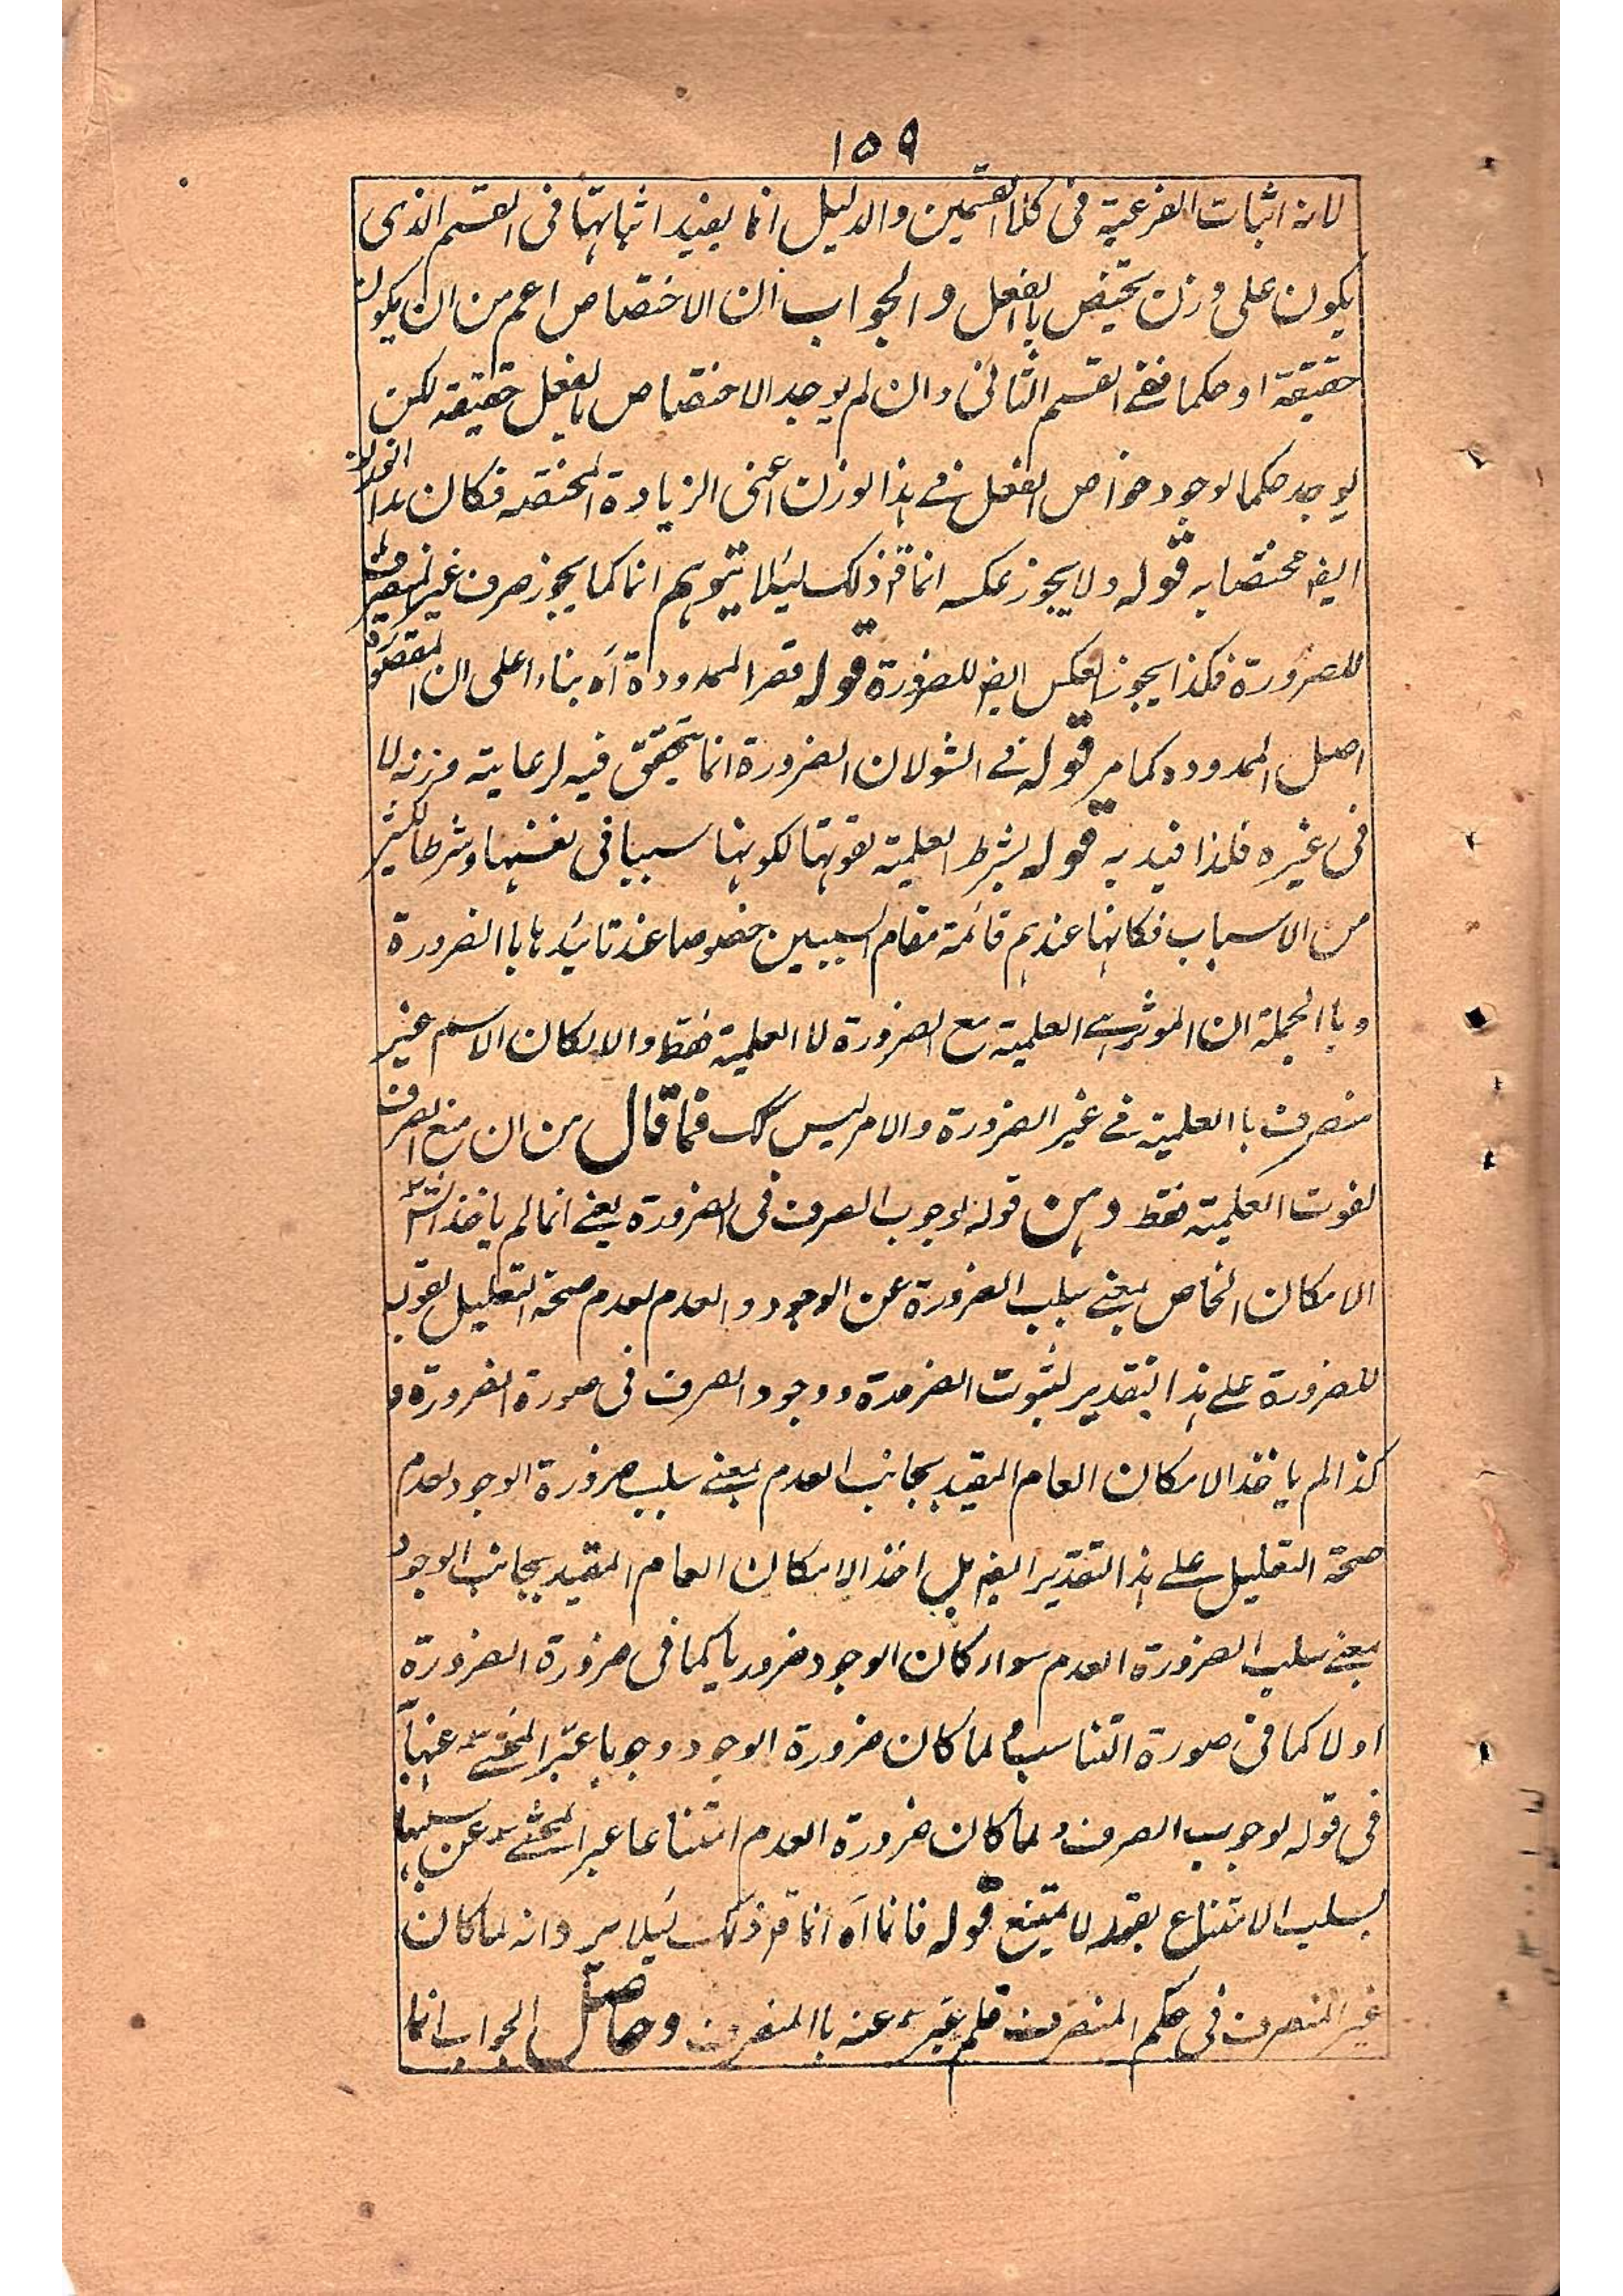 ١٥٩
لانه اثبات الفرعية فى كلا القسمين والدليل انما يفيد اثباتها فى القسم الذى
يكون على وزن يختص بالفعل والجواب ان الاختصاص اعم من ان يكون
حقيقة او حكما ففے القسم الثانى وان لم يوجد الاختصاص بالفعل حقيقة لكن
يوجد حكما لوجود خواص الفعل فے هذا الوزن اعنى الزيادة المختصه فكان هذا الوزن
ايضه مختصا به قوله ولا يجوز عكسه انما قه ذلك ليئلا يتوهم انا كما يجوز صرف غير المنصرف
للضرورة فكذا يجوز العكس ايضه للضرورة قوله قصر الممدودة آه بناء اعلى ان المقصورة
اصل الممدوده كما مر قوله فے الشو لان الضرورة انما يتحقق فيه لرعاية وزنه لا
فى غيره فلذا قيد به قوله بشرط العلمية لقوتها لكونها سببا فى نفسها وشرطا لكثير
من الاسباب فكانها عندهم قائمة مقام السببين خصوصا عند تائيدها باالضرورة
وباالجملة ان الموثر هے العلمية مع الضرورة لا العلمية فقط والا لكان الاسم غير
منصرف باالعلمية فے غير الضرورة والامر ليس كك فما قال من ان منع الصرف
لفوت العلمية فقط وهن قوله لوجوب الصرف فى الضرورة يعنے انما لم ياخذ الشر
الامكان الخاص بمعنے سلب الضرورة عن الوجود والعدم لعدم صحة التعليل لقوله
للضرورة علے هذا التقدير لثبوت الضرورة ووجود الصرف فى صورة الضرورة و
كذا لم ياخذ الامكان العام المقيد بجانب العدم بمعنے سلب ضرورة الوجود لعدم
صحة التعليل علے هذا التقدير ايضه بل اخذ الامكان العام المقيد بجانب الوجود
بمعنے سلب الضرورة العدم سواء كان الوجود ضروريا كما فى ضرورة الضرورة
اولا كما فى صورة التناسب ولما كان ضرورة الوجود وجوبا عبر المحشے عنها
فى قوله لوجوب الصرف ولما كان ضرورة العدم امتناعا عبر المحشے عن سلبها
بسلب الامتناع بقوله لا يمتنع قوله فانما آه انما قه ذلك ليئلا يرد انه لما كان
غير المنصرف فى حكم المنصرف فلم عبر عنه باالمنصرف وحاصل الجواب انا